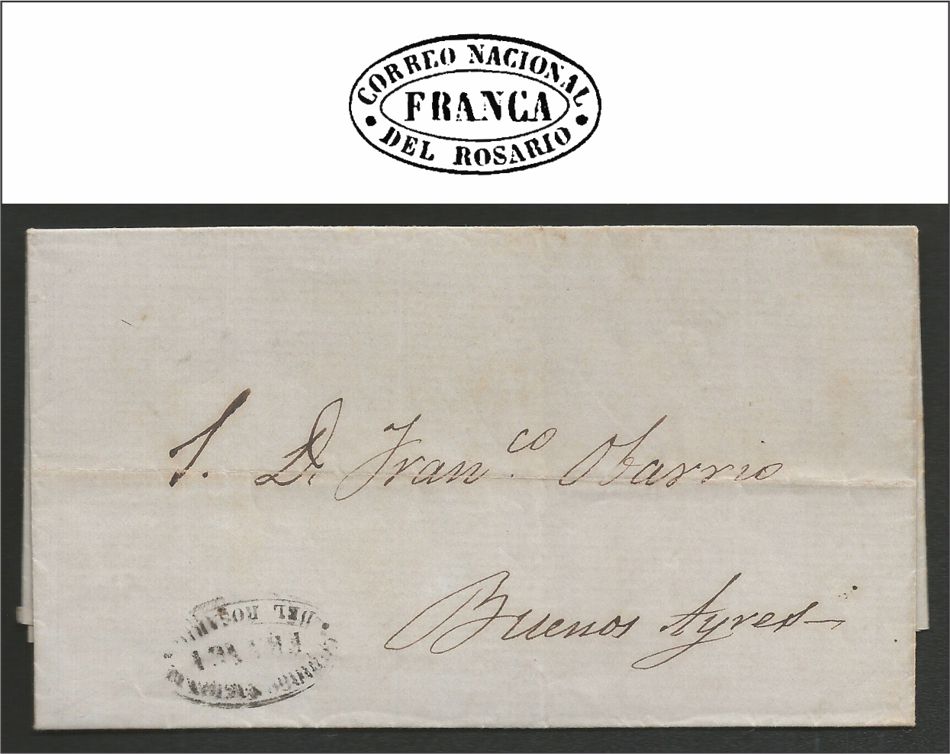 CORREO NACIONAL
FRANCA
DEL ROSARIO
S. D. Fran.co Obarrio
Buenos Ayres
CORREO NACIONAL
FRANCA
DEL ROSARIO